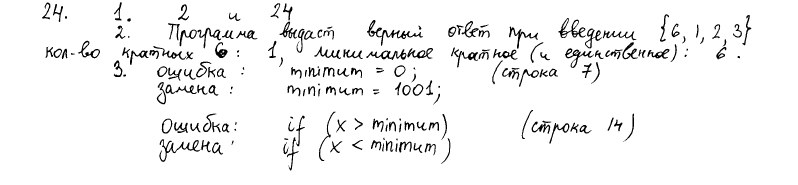 24. 1. 2 и 24
2. Программа выдаст верный ответ при введении {6, 1, 2, 3}
кол-во кратных 6: 1, минимальное кратное (и единственное): 6.
3. ошибка: minimum = 0; (строка 7)
замена: minimum = 1001;
Ошибка: if (x > minimum) (строка 14)
замена: if (x < minimum)